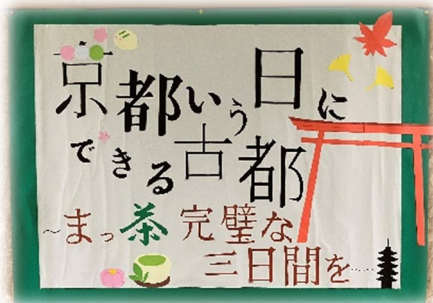 京都いう日に
できる古都
～まっ茶完璧な
三日間を……